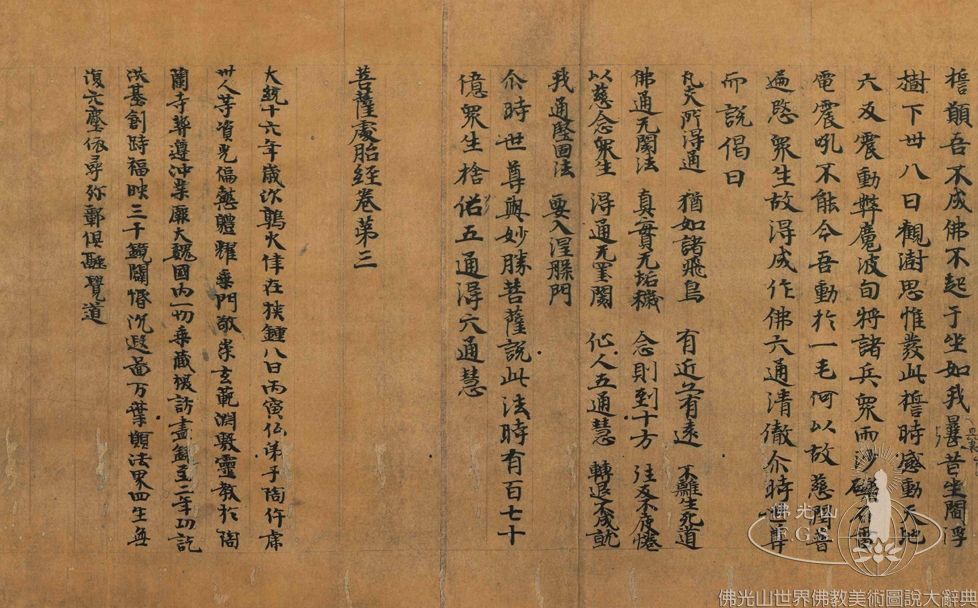 誓願吾不成佛不起于坐如我曩昔坐閻浮
樹下卌八日觀澍思惟發此誓時感動天地
六反震動弊魔波旬將諸兵衆雨沙礫石雷
電震吼不能令吾動於一毛何以故慈閔普
遍愍衆生故得成作佛六通清徹尒時世尊
而說偈曰
凡夫所得通 猶如諸飛鳥 有近亦有遠 不離生死道
佛通无閡法 真實无垢穢 念則到十方 往反不疲惓
以慈念衆生 得通无罣閡 仙人五通慧 轉退不成就
我通堅固法 要入涅槃門
尒時世尊與妙勝菩薩說此法時有百七十
億衆生捨俗五通得六通慧
菩薩處胎經卷第三
大統十六年歲次鶉火律在狹鍾八日丙寅仏弟子陶仵虎
卅人等資光偏慜體耀乘門敬崇玄範淵敷靈教於陶
蘭寺尊遵沖業廉大魏國内一切乘藏搜訪盡錄至二年功訖
洪基創跱福映三千鏡闡惛沉遐啚万葉願法界四生無
復六塵依尋弥鄣俱融覺道
佛光山
F.G.S.
佛光山世界佛教美術圖說大辭典